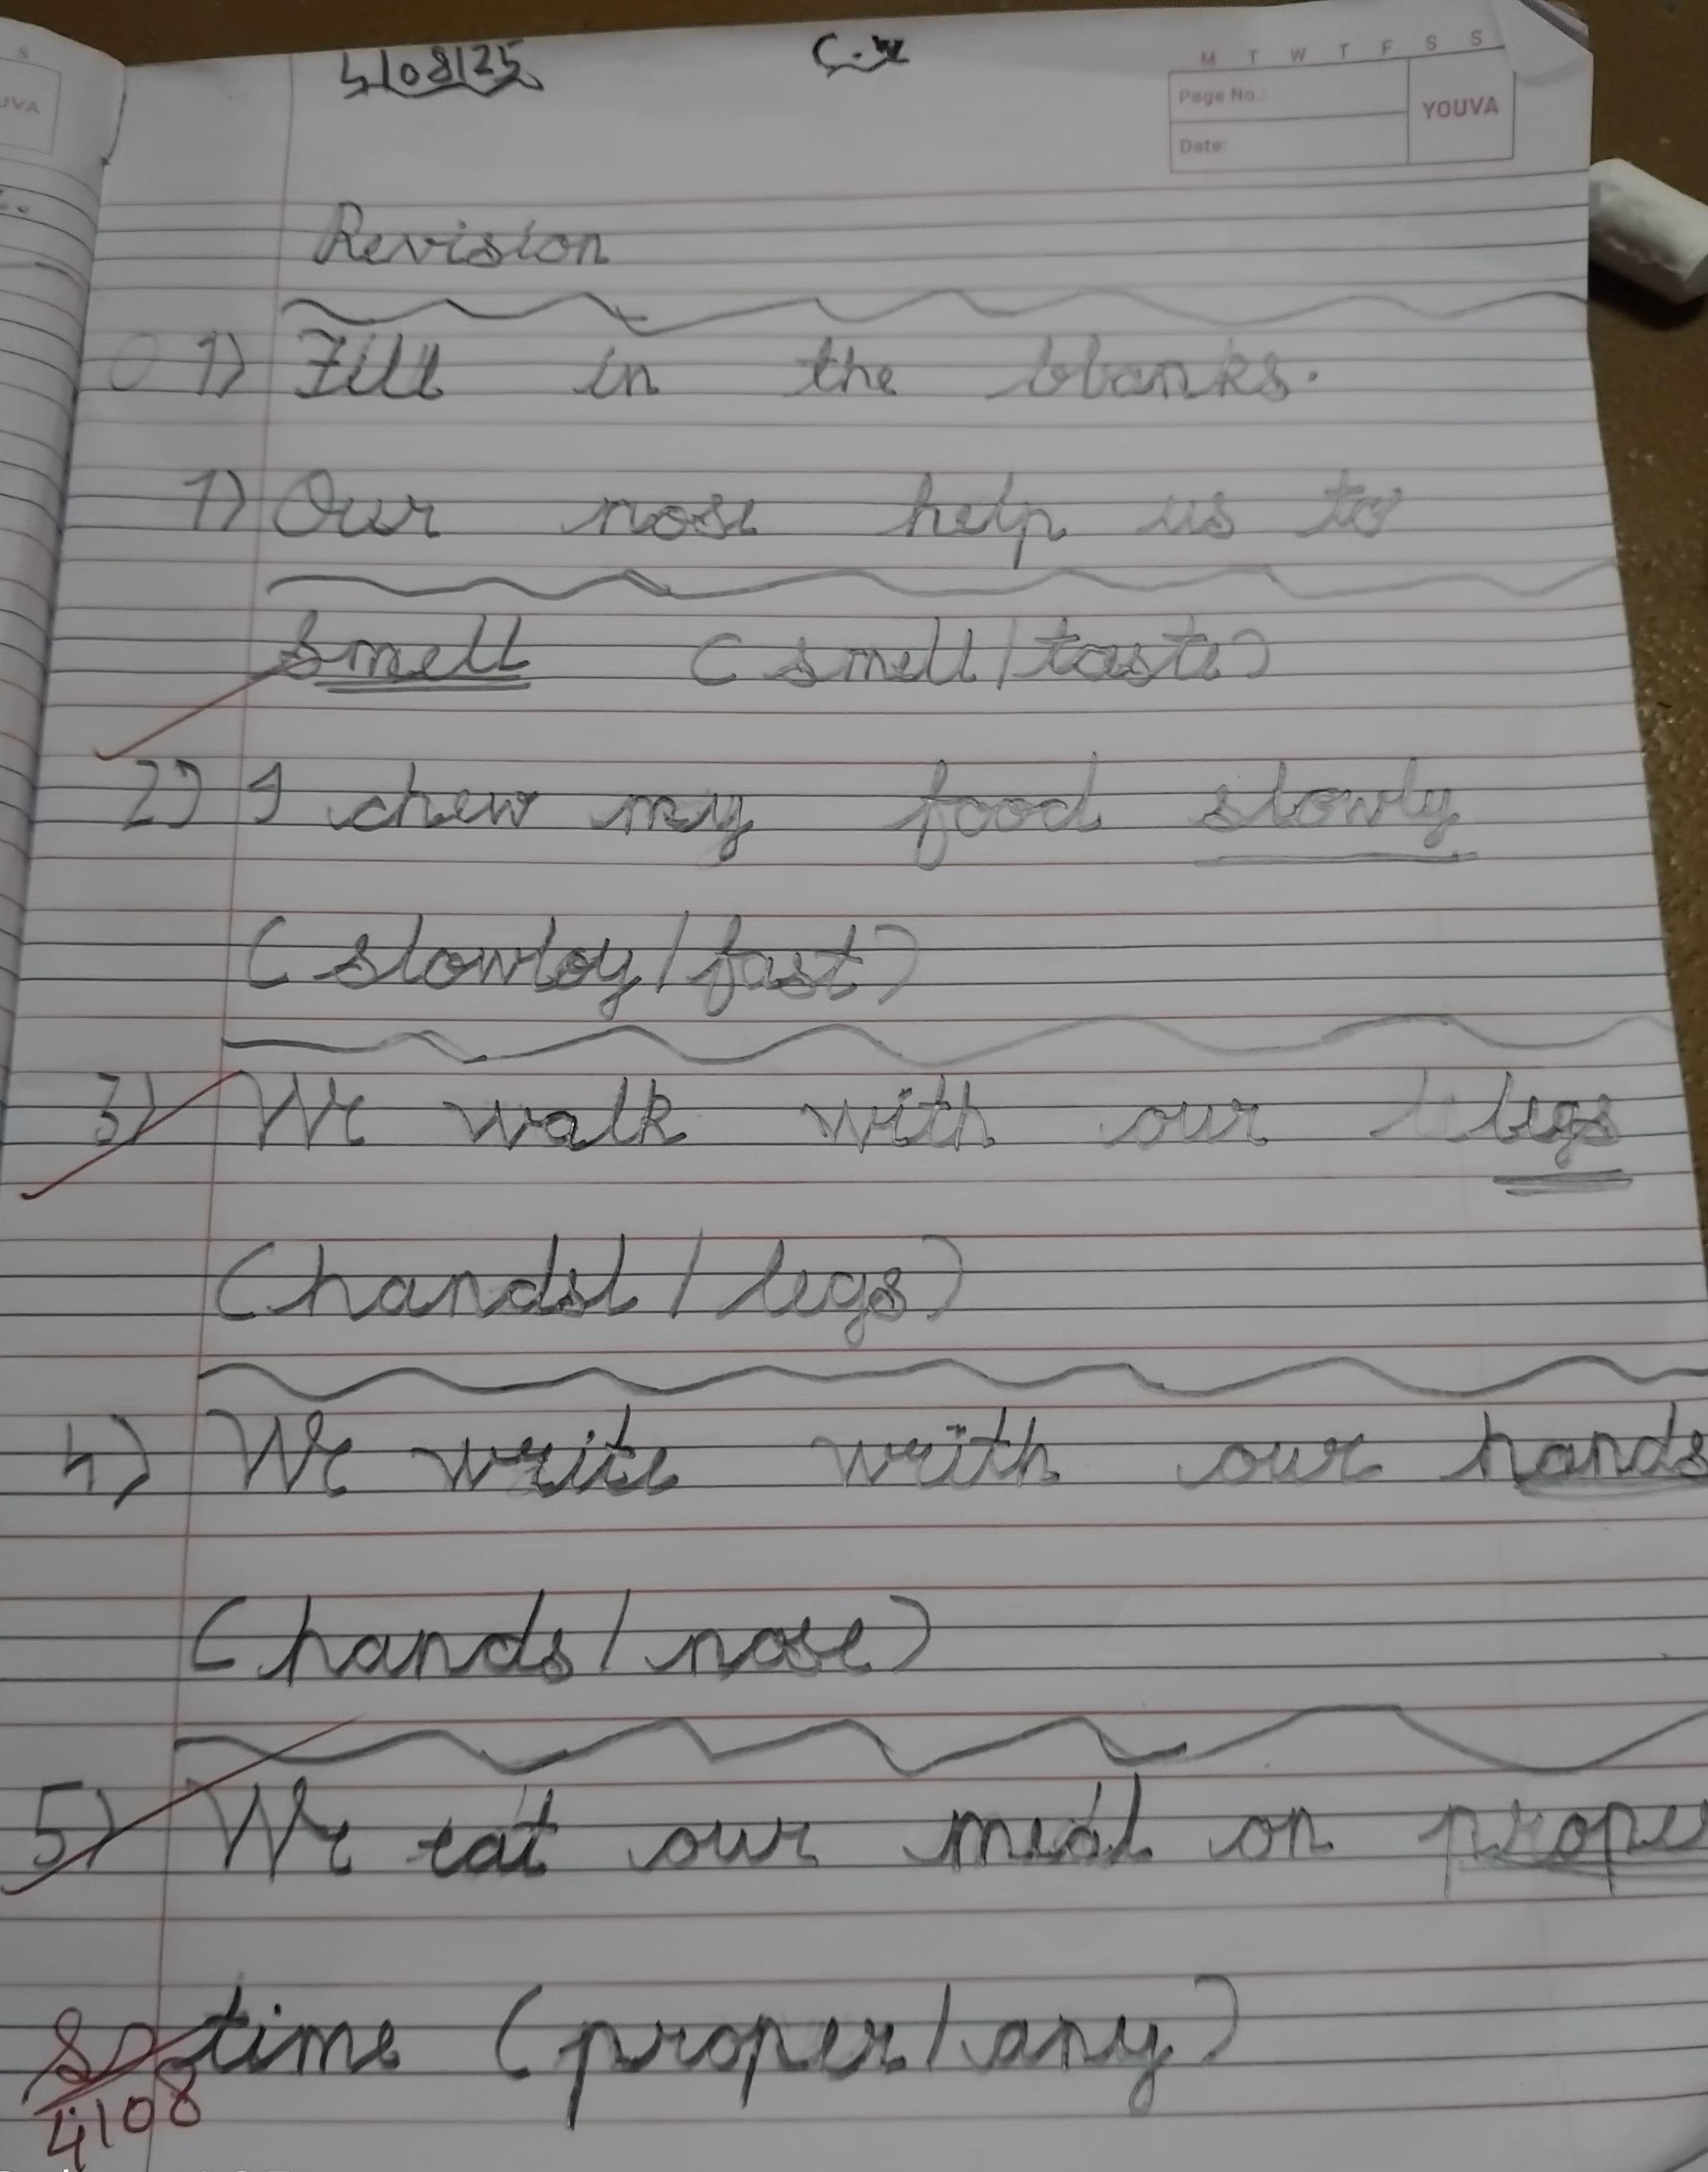 4/08/25 C.W
M T W T F S S
Page No.:
YOUVA
Date:
Revision
Q 1) Fill in the blanks.
1) Our nose help us to
smell (smell/taste)
2) I chew my food slowly
(slowloy/fast)
3) We walk with our legs
(hands/legs)
4) We write writh our hands
(hands/nose)
5) We eat our meal on prope
time (proper/any)
4/08